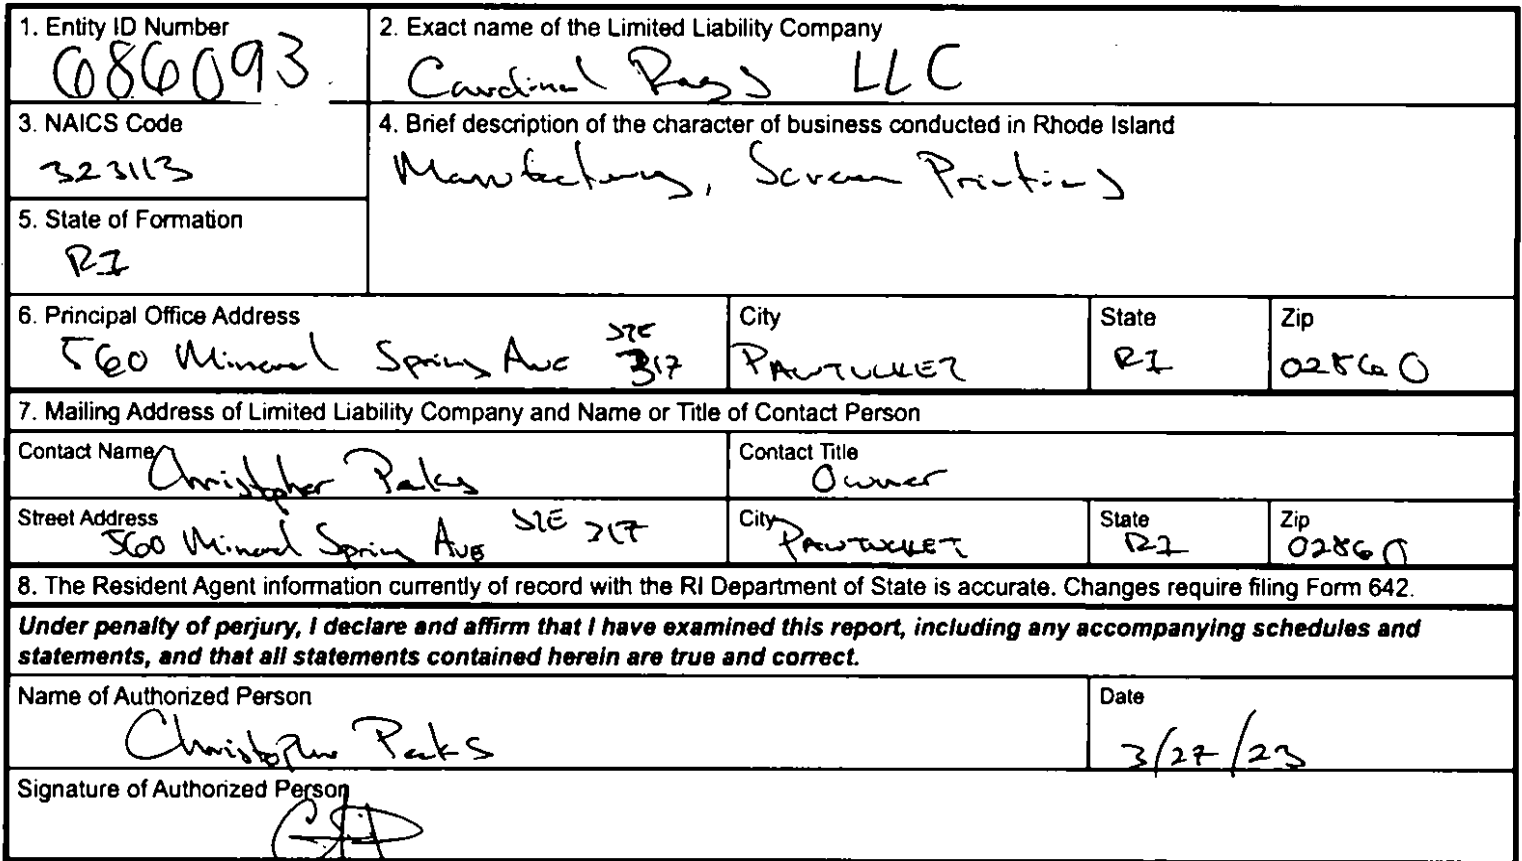 1. Entity ID Number
686093
2. Exact name of the Limited Liability Company
Cardinal Rags LLC
3. NAICS Code
323113
4. Brief description of the character of business conducted in Rhode Island
Manufacturing, Screen Printing
5. State of Formation
RI
6. Principal Office Address
560 Mineral Spring Ave STE 317
City
PAWTUCKET
State
RI
Zip
02860
7. Mailing Address of Limited Liability Company and Name or Title of Contact Person
Contact Name
Christopher
Contact Title
Owner
Street Address
560 Mineral Spring Ave STE 317
City
PAWTUCKET
State
RI
Zip
02860
8. The Resident Agent information currently of record with the RI Department of State is accurate. Changes require filing Form 642.
Under penalty of perjury, I declare and affirm that I have examined this report, including any accompanying schedules and
statements, and that all statements contained herein are true and correct.
Name of Authorized Person
Christopher
Date
3/27/23
Signature of Authorized Person